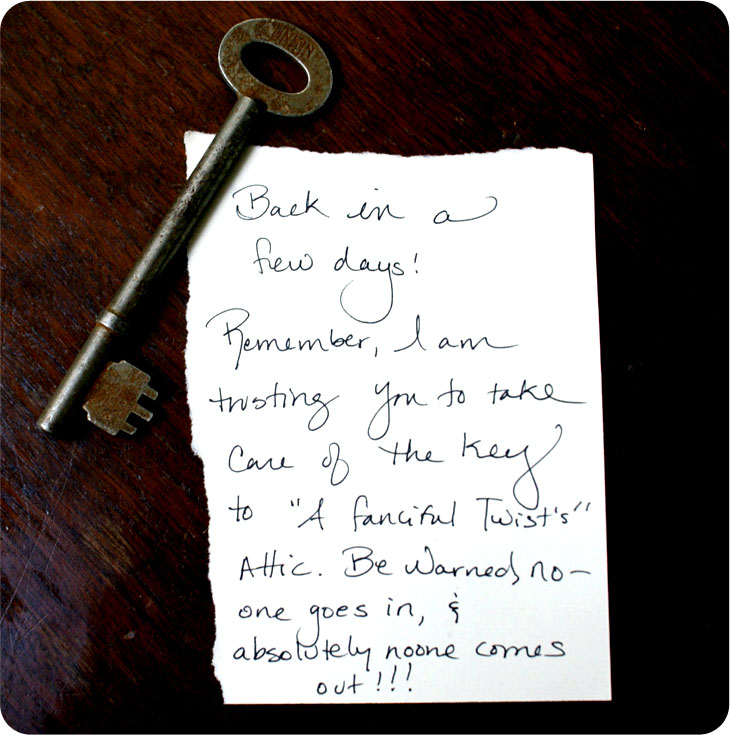 Back in a
few days!
Remember, I am
trusting you to take
care of the key
to "A fanciful Twist's"
Attic. Be Warned, no-
one goes in, &
absolutely noone comes
out!!!